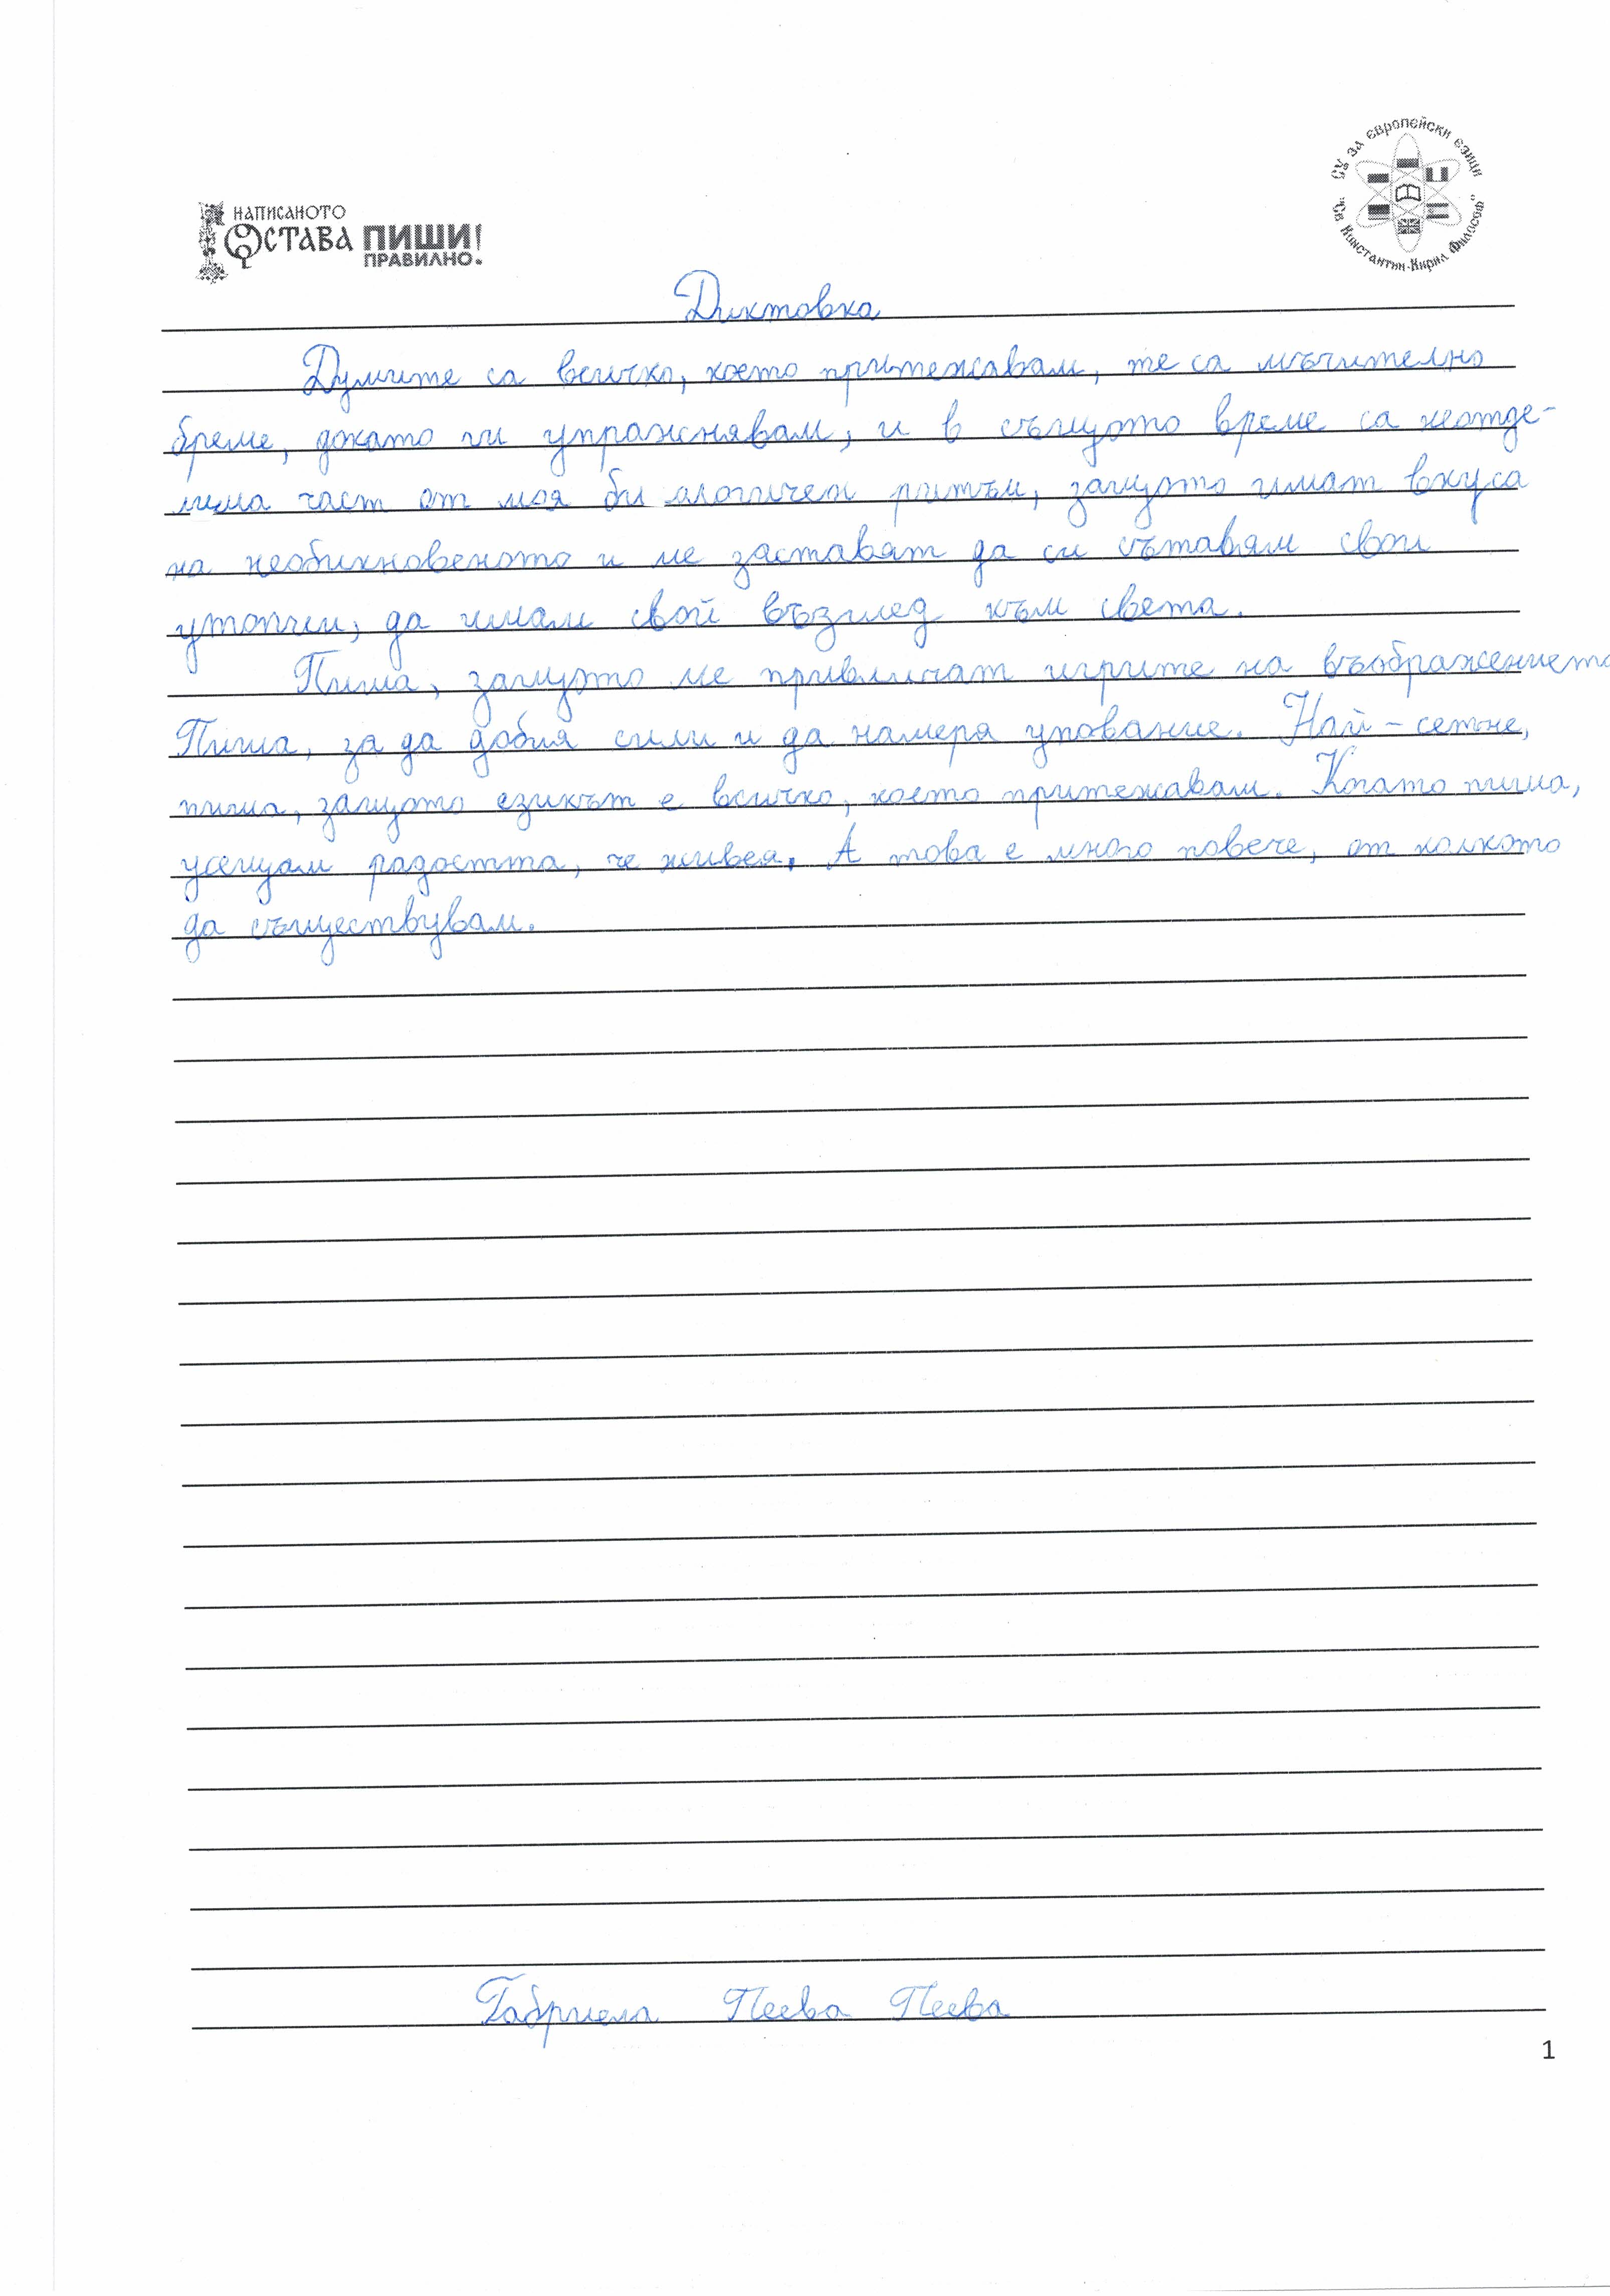 НАПИСАНОТО
ОСТАВА ПИШИ!
ПРАВИЛНО.
СУ за европейски езици
"Св. Константин-Кирил Философ"
Диктовка
Думите са всичко, което притежавам, те са мъчително
бреме, докато ги упражнявам, и в същото време са неотде-
лима част от моя би алогичен ритъм, защото имат вкуса
на необикновеното и ме заставят да си сътавям свои
утопии, да имам свой възглед към света.
Пиша, защото ме привличат игрите на въображението
Пиша, за да добия сили и да намеря упование. Най-сетне,
пиша, защото езикът е всичко, което притежавам. Когато пиша,
усещам радостта, че живея. А това е много повече, от колкото
да съществувам.
Габриела Пеева Пеева
1